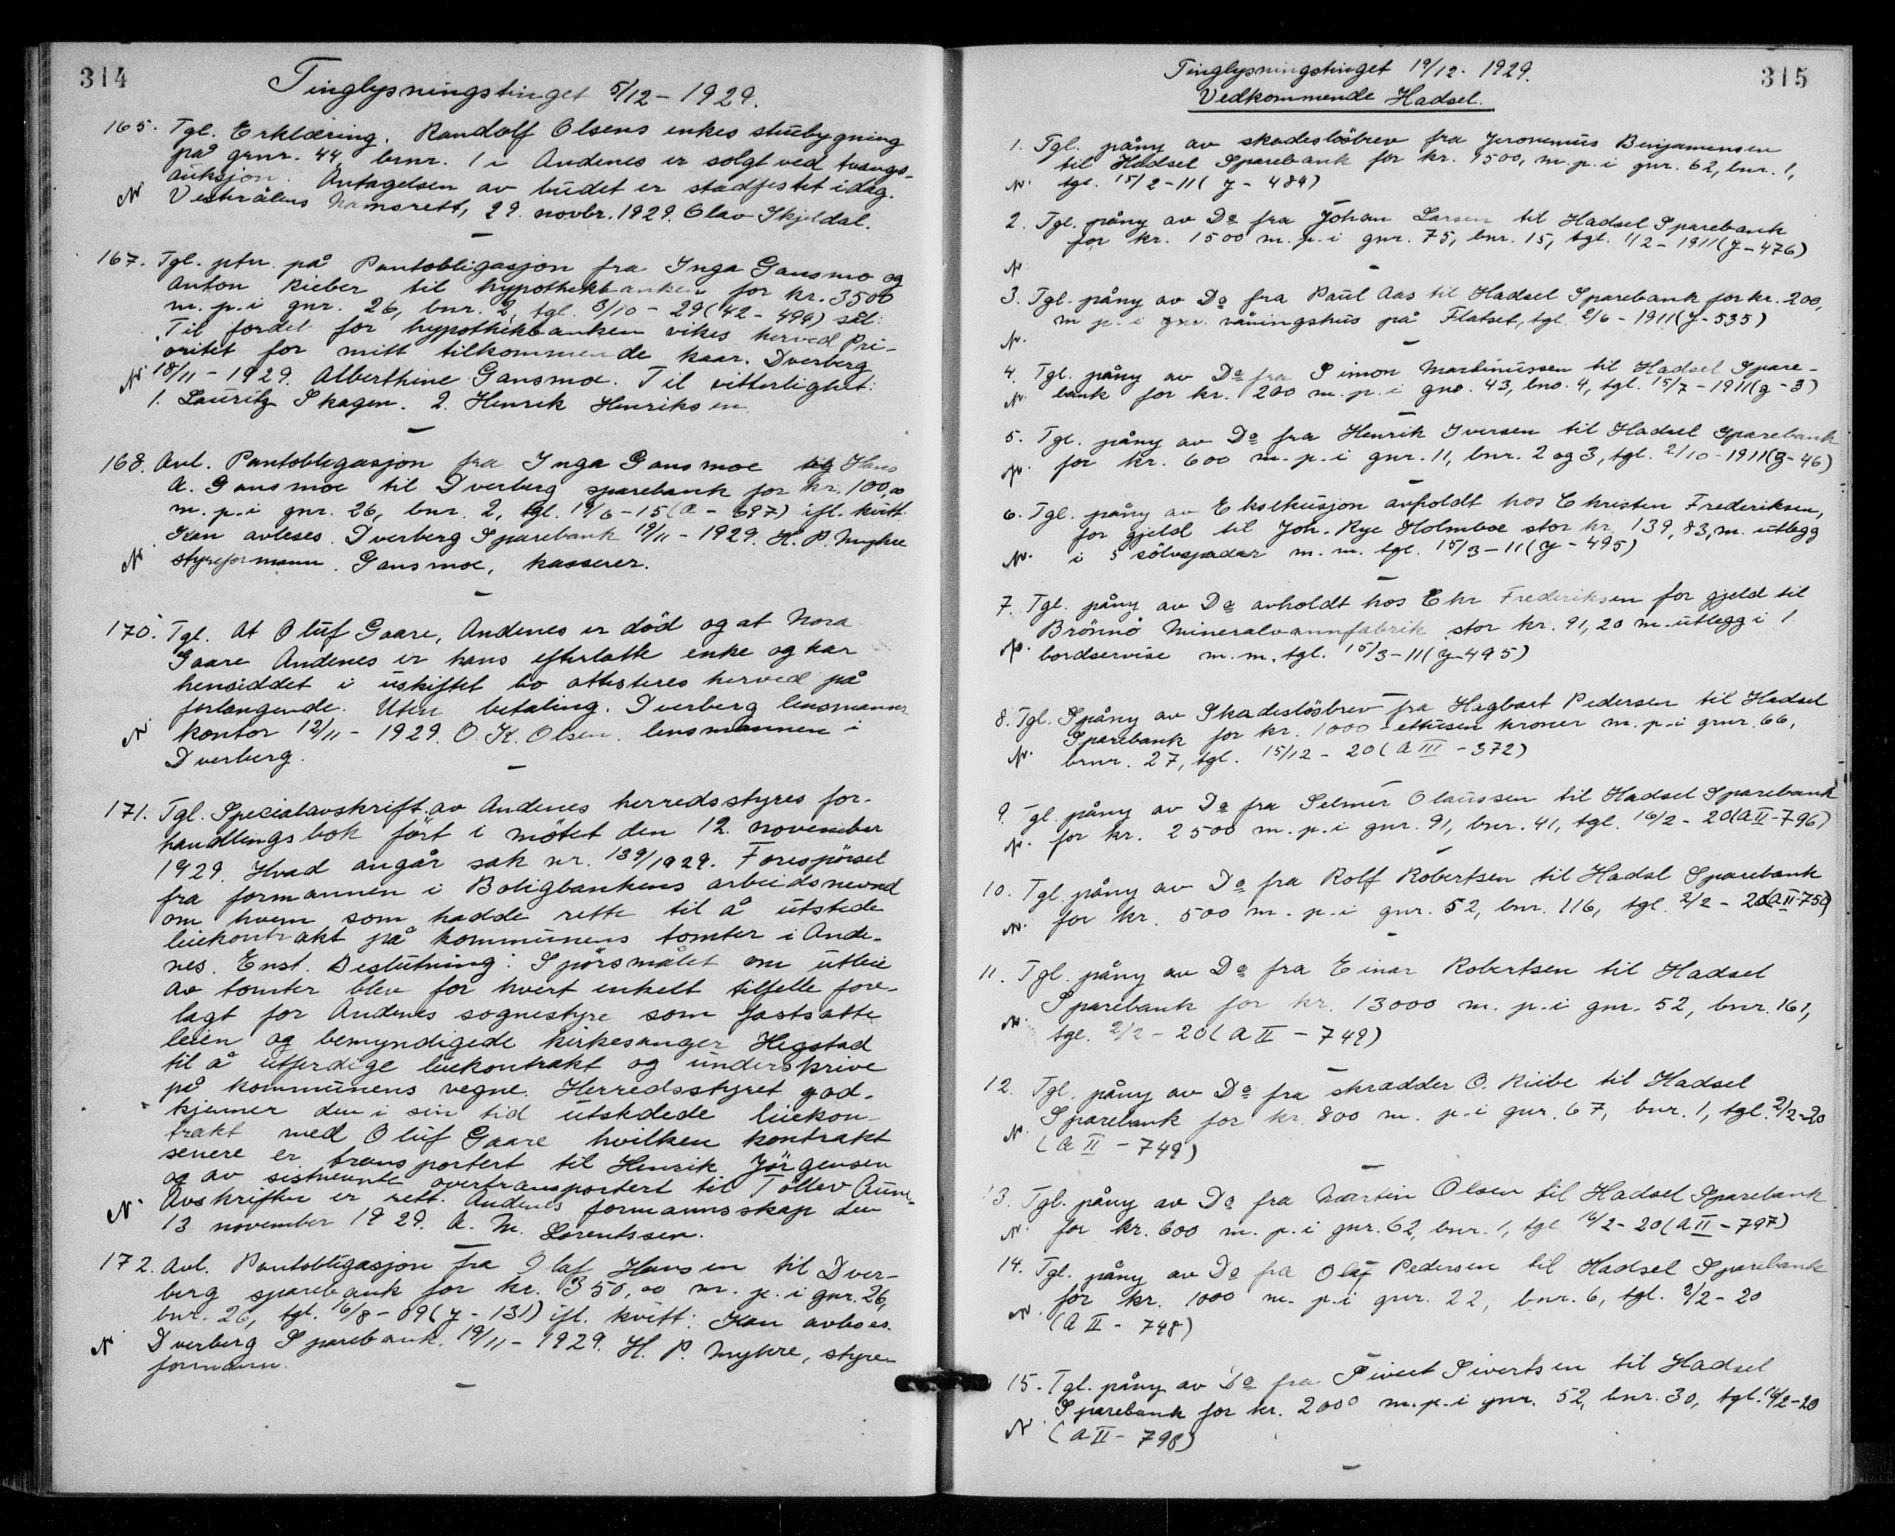 314
Tinglysningstinget 5/12 - 1929.
165. Tgl. Erklæring. Randolf Olsens enkes stuebygning
på grnr. 44, brnr. 1 i Andenes er solgt ved tvangs-
auksjon. Antagelsen av budet er stadfestet idag.
N Vesterålens Namsrett, 29. novbr. 1929. Olav Skjeldal.
167. Tgl. ptn. på Pantobligasjon fra Inga Gansmo og
Anton Rieber til hypothekbanken for kr. 3500
m. p. i gnr. 26, bnr. 2, tgl. 3/10 - 29 (42 - 499) sål:
Til fordel for hypothekbanken vikes herved Pri-
oritet for mitt tilkommende kaar. Dverberg
N. 18/11 - 1929. Alberthine Gansmoe. Til vitterlighet:
1. Lauritz Skagen. 2. Henrik Henriksen
168. Avl. Pantobligasjon fra Inga Gansmoe Hans
A. Gansmoe til Dverberg sparebank for kr. 100,00
m. p. i gnr. 26, bnr. 2, tgl. 19/6 - 15 (A - 697) ifl. kvitt.
Kan avleses. Dverberg Sparebank 19/11 - 1929. H. P. Myhre
N. styreformann. Gansmoe, kasserer.
170. Tgl. At Oluf Gaare, Andenes er død og at Nora
Gaare Andenes er hans efterlatte enke og har
hensiddet i uskiftet bo attesteres herved på
forlangende. Uten betaling. Dverberg lensmanns
N. kontor 12/11 - 1929. O. K. Olsen. lensmannen i
Dverberg.
171. Tgl. Specialavskrift av Andenes herredsstyres for-
handlingsbok ført i møtet den 12. november
1929. Hvad angår sak nr. 139/1929. Forespørsel
fra formannen i Boligbankens arbeidsnevnd
om hvem som hadde rett til å utstede
leiekontrakt på kommunens tomter i Ande-
nes. Enst. Beslutning: Spørsmålet om utleie
av tomter blev for hvert enkelt tilfelle fore-
lagt for Andenes sognestyre som fastsatte
leien og bemyndigede kirkesanger Hegstad
til å utferdige leiekontrakt og underskrive
på kommunens vegne. Herredsstyret god-
kjenner den i sin tid utstedede leiekon-
trakt med Oluf Gaare hvilken kontrakt
senere er transportert til Henrik Jörgensen
og av sistnevnte overtransportert til Tollev Aune.
N. Avskriften er rett. Andenes formannsskap den
13 november 1929. A. M. Lorentssen.
172. Avl. Pantobligasjon fra Olaf Hansen til Dver-
berg sparebank for kr. 350,00 m. p. i gnr. 26,
bnr. 26, tgl. 16/8 - 09 (y - 131) ifl. kvitt: Kan avleses.
N Dverberg Sparebank. 19/11 - 1929. H. P. Myhre, styre-
formann.
315
Tinglysningstinget 19/12 - 1929.
Vedkommende Hadsel.
1. Tgl. påny av skadeslösbrev fra Jeronimus Benjamensen
til Hadsel Sparebank for kr. 9500, m. p. i gnr. 62, bnr. 1,
N. tgl. 15/2 - 11 (y - 484)
2. Tgl. påny av Do fra Johan Larsen til Hadsel Sparebank
for kr. 1500 m. p. i gnr. 75, bnr. 15, tgl. 1/2 - 1911 (y - 476)
N
3. Tgl. påny av Do fra Paul Aas til Hadsel Sparebank for kr. 200,
m p. i gnr. våningshus på Flatset, tgl. 2/6 - 1911 (y - 535)
N.
4. Tgl. påny av Do fra Simon Martinussen til Hadsel Spare-
N. bank for kr. 1200 m. p. i gno. 43, bno. 4, tgl. 15/7 - 1911 (z - 3)
5. Tgl. påny av Do fra Henrik Iversen til Hadsel Sparebank
N. for kr. 600 m. p. i gnr. 11, bnr. 2 og 3, tgl. 2/10 - 1911 (z - 46)
6. Tgl. påny av Eksekusjon avholdt hos Christen Frederiksen,
for gjeld til Joh. Rye Holmboe stor kr. 139,83, m. utlegg
N. i 5 sölvspader m. m. tgl. 15/3 - 11 (y - 495)
7. Tgl. påny av Do avholdt hos Chr Frederiksen for gjeld til
Brönnö Mineralvannfabrik stor kr. 91,20 m. utlegg i 1
N. bordservise m. m. tgl. 15/3 - 11 (y - 495)
8. Tgl. påny av Skadeslösbrev fra Hagbart Pedersen til Hadsel
Sparebank for kr. 1000 - ettusen kroner m. p. i gnr. 66,
N. brnr. 27, tgl. 15/12 - 20 (A III - 372)
9. Tgl. påny av Do fra Selmer Olaussen til Hadsel Sparebank
N. for kr. 2500 m. p. i gnr. 91, bnr. 41, tgl. 16/2 - 20 (A II - 796)
10. Tgl. påny av Do fra Rolf Robertsen til Hadsel Sparebank
N. for kr. 500 m. p. i gnr. 52, bnr. 116, tgl. 2/2 - 20 (A II - 750)
11. Tgl. påny av Do fra Einar Robertsen til Hadsel
Sparebank for kr. 13000 m. p. i gnr. 52, bnr. 161,
N. tgl. 2/2 - 20 (A II - 749)
12. Tgl. påny av Do fra skrædder O. Riibe til Hadsel
Sparebank for kr. 800 m. p. i gnr. 67, bnr. 1, tgl. 2/2 - 20
N. (A II - 749)
13. Tgl. påny av Do fra Martin Olsen til Hadsel Sparebank
N. for kr. 600 m. p. i gnr. 62, bnr. 1, tgl 16/2 - 20 (A II - 797)
14. Tgl. påny av Do fra Olaf Pedersen til Hadsel Sparebank
for kr. 1000 m. p. i gnr. 22, bnr. 6, tgl. 2/2 - 20
N. (A II - 748)
15. Tgl. påny av Do fra Sivert Sivertsen til Hadsel
Sparebank for kr. 2000 m. p. i gnr. 52, bnr. 30, tgl. 16/2 - 20
N (A II - 798)